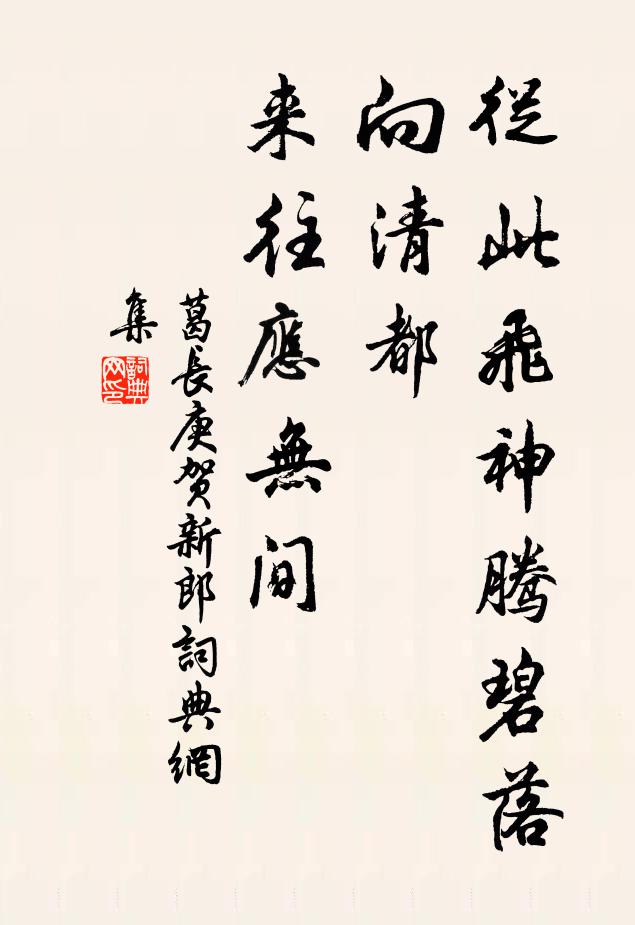 從此飛神騰碧落
向清都
来往應無間
葛長庚賀新郎詞典網
集
詞典
网印